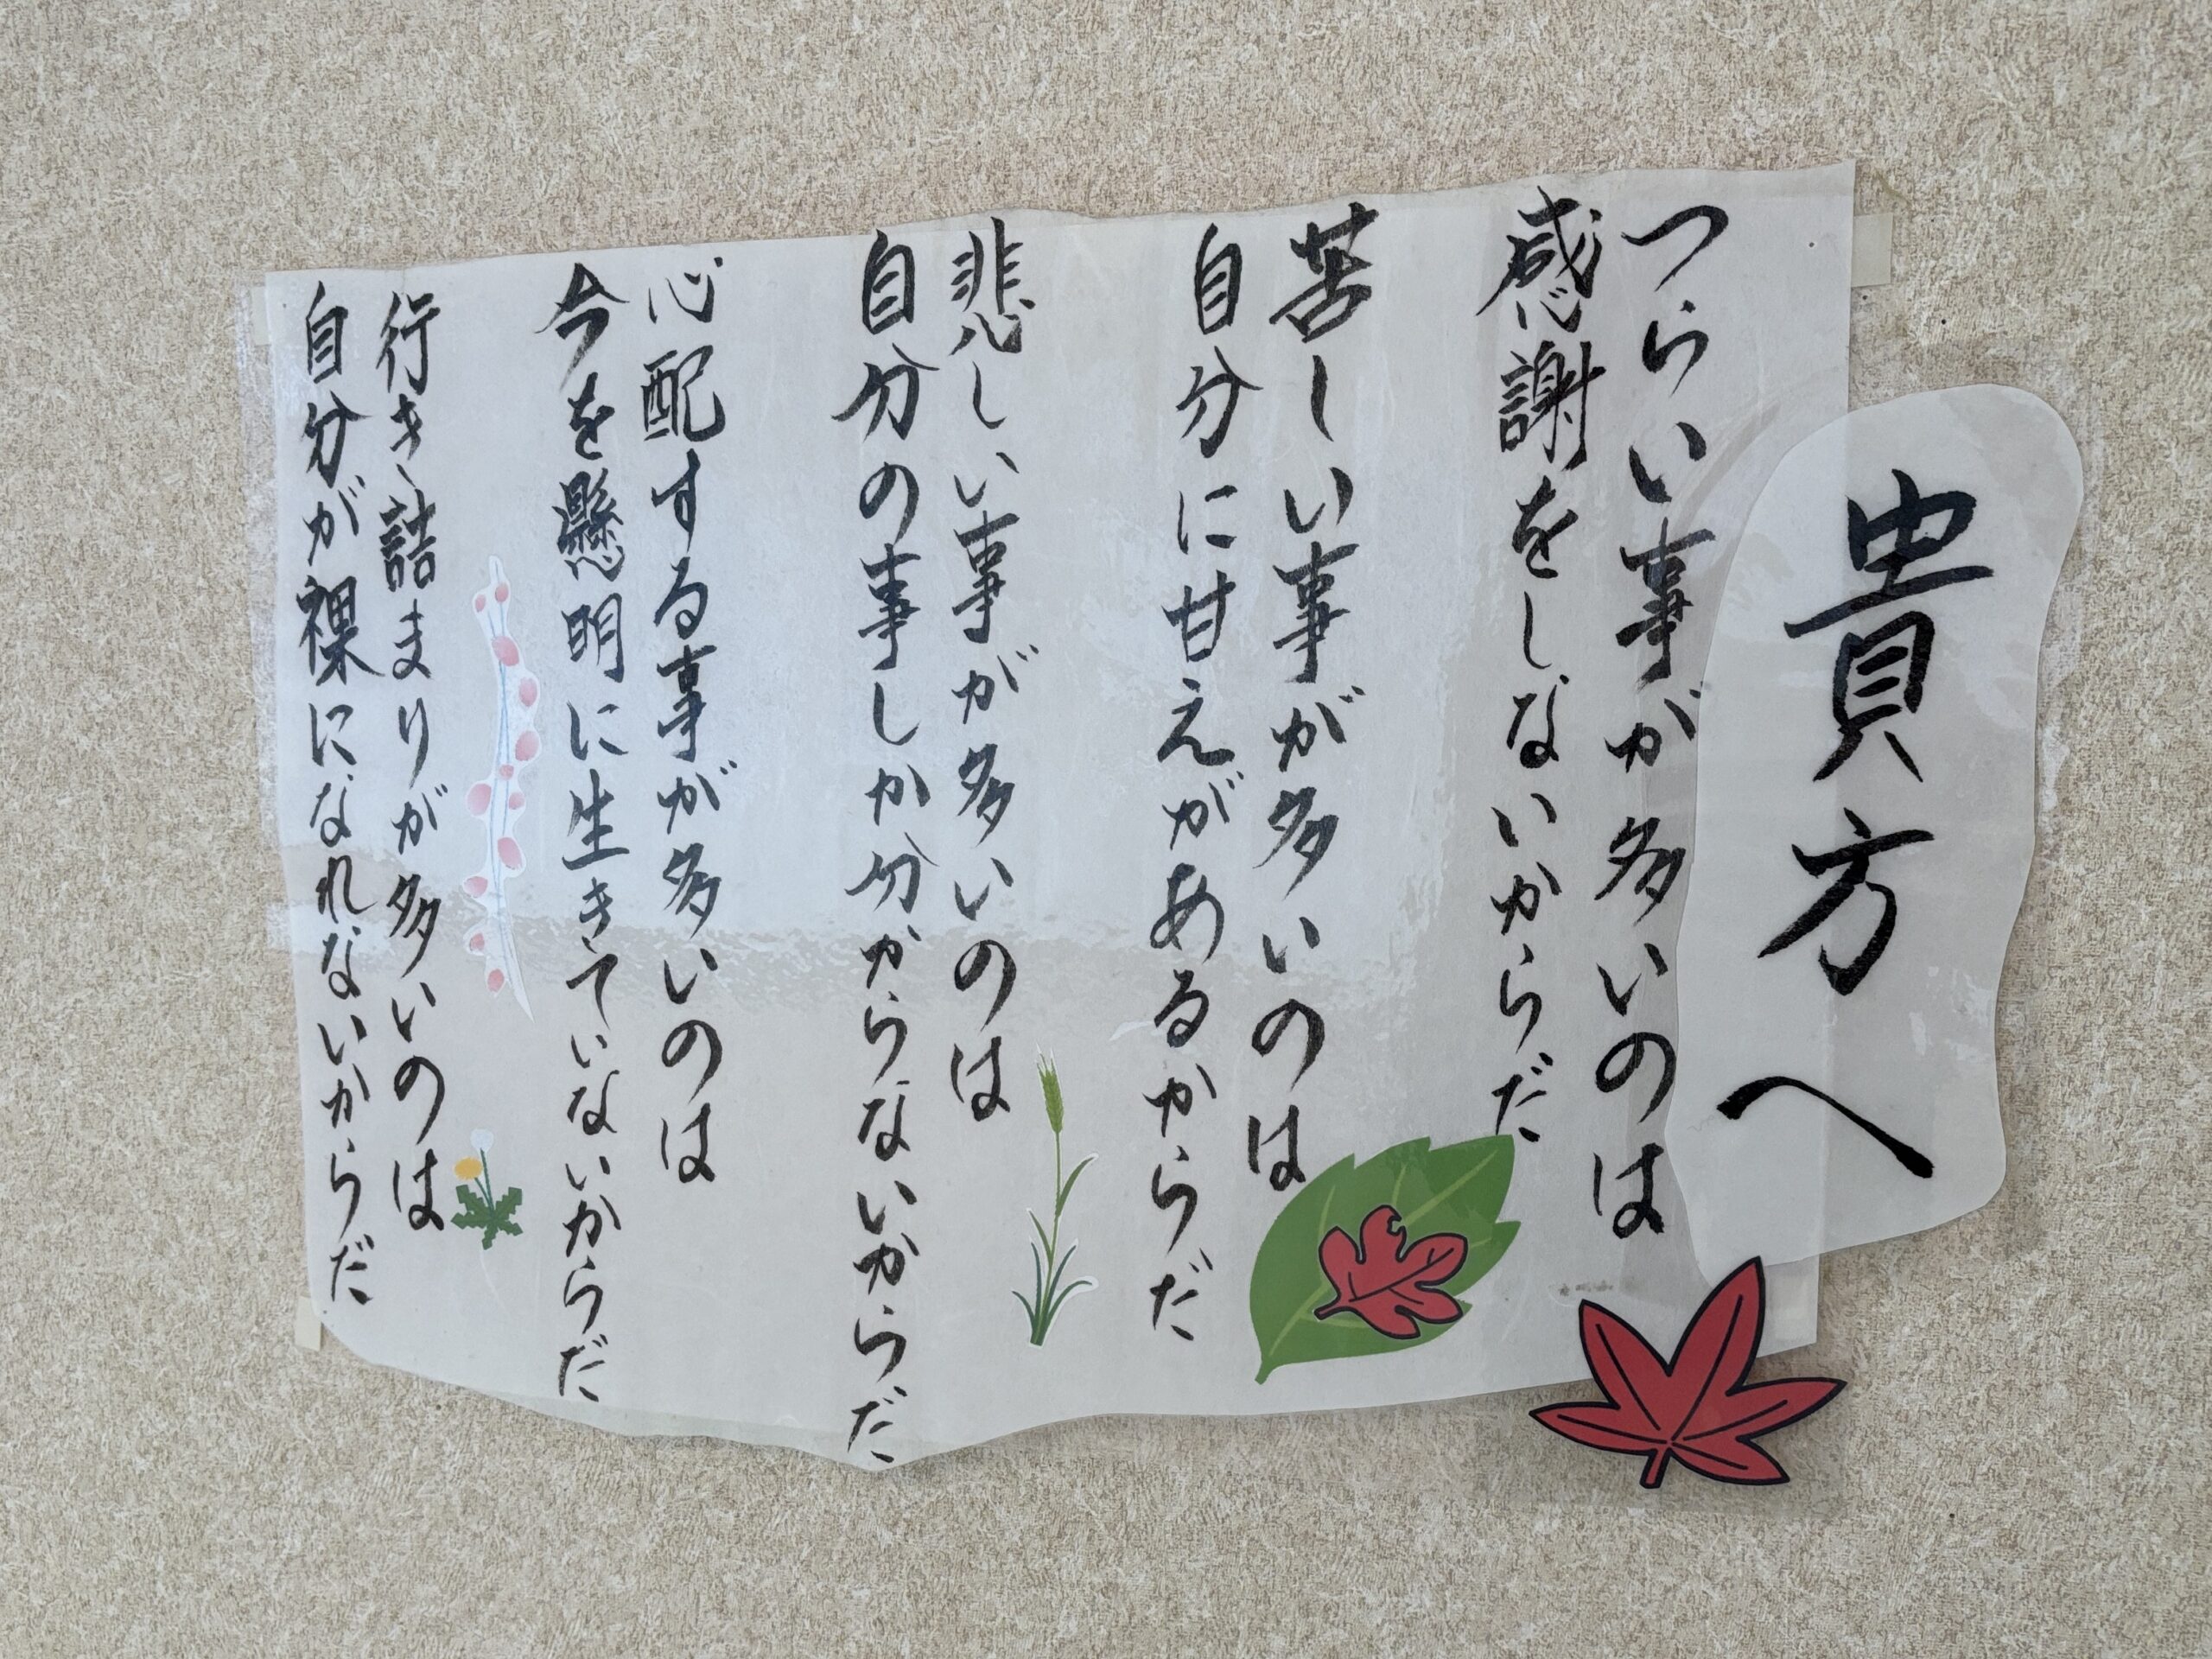 貴方へ
つらい事が多いのは
感謝をしないからだ
苦しい事が多いのは
自分に甘えがあるからだ
悲しい事が多いのは
自分の事しか分からないからだ
心配する事が多いのは
今を懸明に生きていないからだ
行き詰まりが多いのは
自分が裸になれないからだ